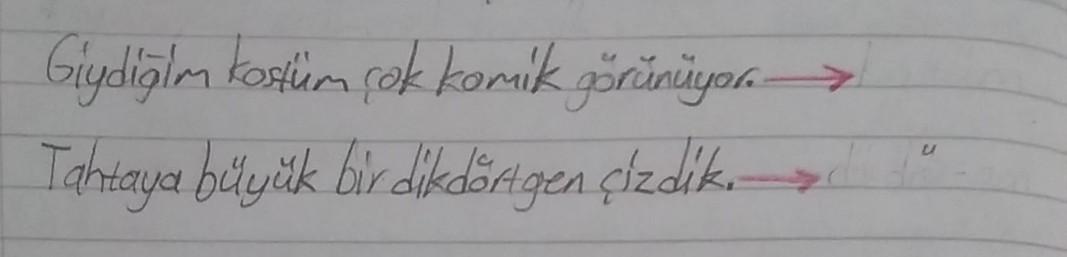 Giydiğim kostüm çok komik görünüyor. →
Tahtaya büyük bir dikdörtgen çizdik. →